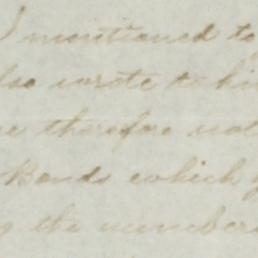 I mentioned to
also wrote to hi
therefore not
Bonds which y
the numbers